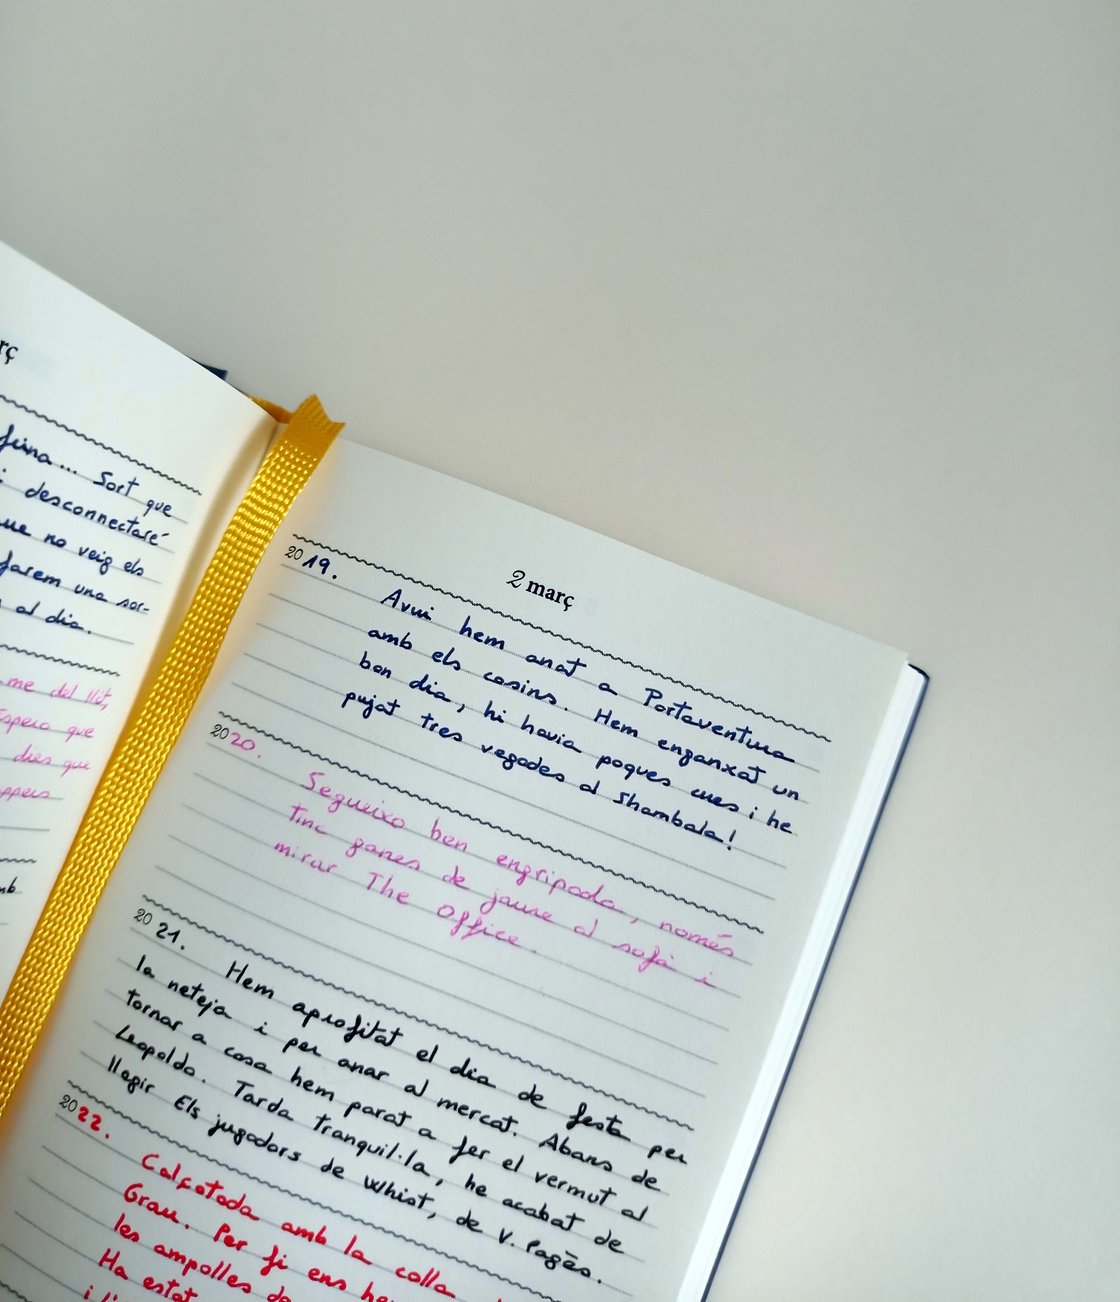 rç
feina... Sort que
i desconnectaré
que no veig els
farem una sor-
al dia.
me del llit,
Espero que
dies que
mb
2 març
2019.
Avui hem anat a Portaventura
amb els cosins. Hem enganxat un
bon dia, hi havia poques cues i he
pujat tres vegades al Shambala!
2020.
Segueixo ben engripada, només
tinc ganes de jaure al sofà i
mirar The Office.
2021.
Hem aprofitat el dia de festa per
la neteja i per anar al mercat. Abans de
tornar a casa hem parat a fer el vermut al
Leopoldo. Tarda tranquil·la, he acabat de
llegir Els jugadors de Whist, de V. Pagès.
2022.
Calçotada amb la colla
Grau. Per fi ens he
les ampolles de
Ha estat